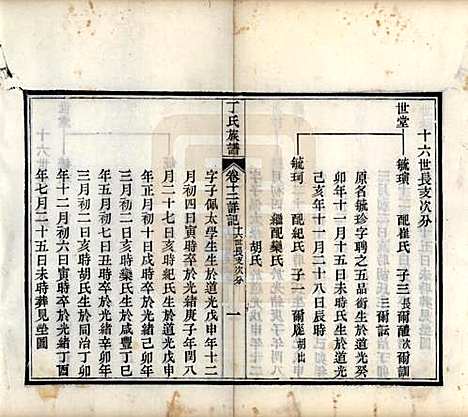 十六世長支次分
世堂
毓璜 配崔氏 子三長爾醴次爾訓
三爾訒
原名毓珍字聘之五品銜生於道光癸
卯年十一月十五日未時崔氏生於道光
己亥年十一月二十八日辰時
毓珂 配紀氏 子一爾庵胡出
繼配欒氏
胡氏
丁氏族譜
卷十二詳記 十六世長支次分 一
字子佩太學生生於道光戊申年十二
月初四日寅時卒於光緒庚子年閏八
月二十二日亥時紀氏生於道光戊申
年正月初十日亥時卒於光緒己卯年
三月初二日亥時欒氏生於咸豐丁巳
年五月初二日亥時卒於光緒辛卯年
三月初二日亥時胡氏生於同治丁卯
年十二月初六日寅時卒於光緒丁酉
年七月二十五日未時葬見塋圖